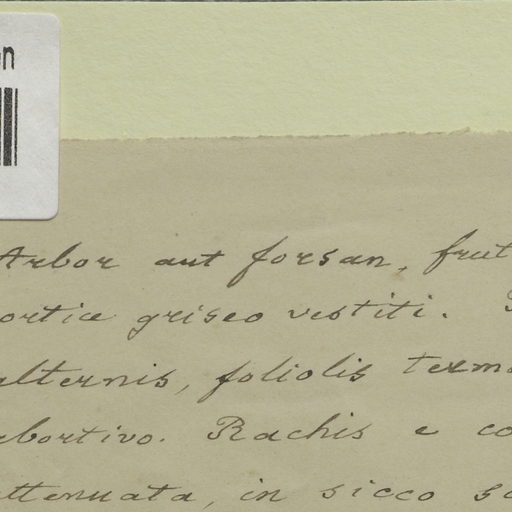 on
Arbor aut forsan, frut
ortice griseo vestiti.
alternis, foliolis term
abortivo. Rachis e co
attenuata, in sicco